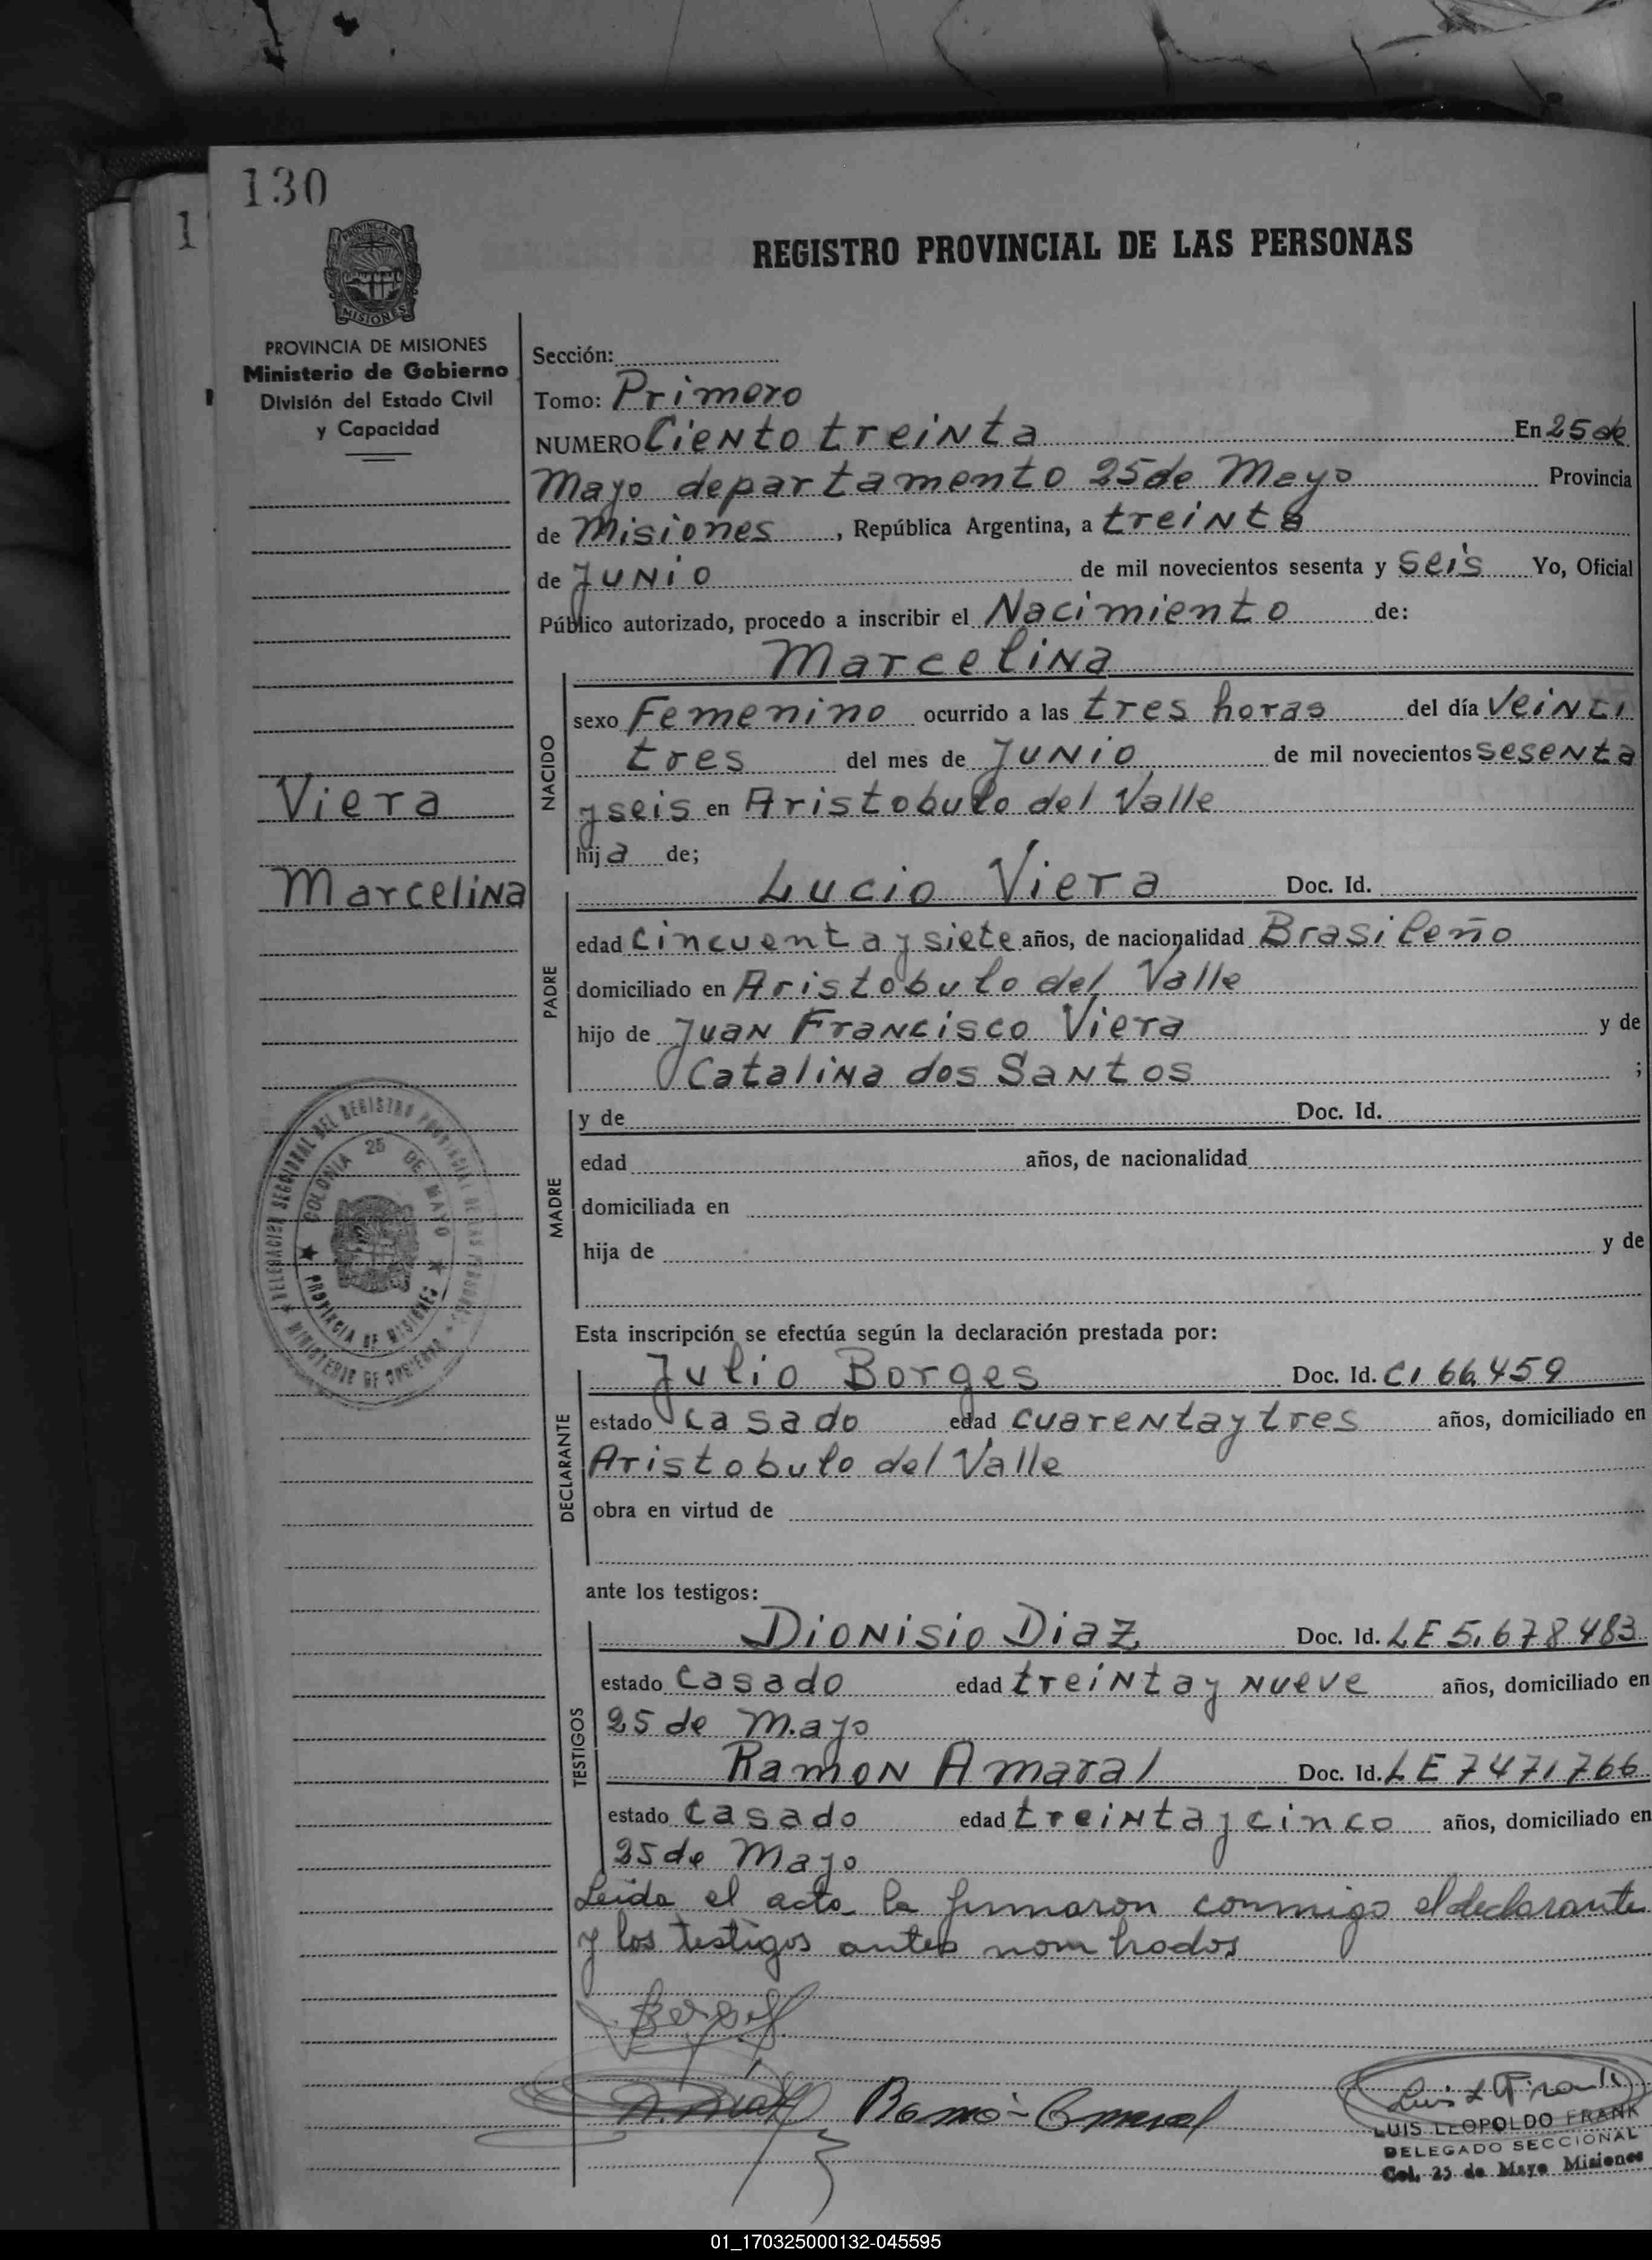 130
1
REGISTRO PROVINCIAL DE LAS PERSONAS
PROVINCIA DE
MISIONES
PROVINCIA DE MISIONES
Ministerio de Gobierno
División del Estado Civil
y Capacidad
Viera
Marcelina
DELEGACION SECCIONAL DEL REGISTRO PROVINCIAL DE LAS PERSONAS
MINISTERIO DE GOBIERNO
COLONIA 25 DE MAYO
PROVINCIA DE MISIONES
Sección:
Tomo: Primero
NUMERO Ciento treinta En 25 de
Mayo departamento 25 de Mayo Provincia
de Misiones, República Argentina, a treinta
de Junio de mil novecientos sesenta y seis Yo, Oficial
Público autorizado, procedo a inscribir el Nacimiento de:
Marcelina
NACIDO
sexo Femenino ocurrido a las tres horas del día veinti
tres del mes de Junio de mil novecientos sesenta
y seis en Aristobulo del Valle
hija de;
PADRE
Lucio Viera Doc. Id.
edad cincuenta y siete años, de nacionalidad Brasileño
domiciliado en Aristobulo del Valle
hijo de Juan Francisco Viera y de
Catalina dos Santos ;
MADRE
y de Doc. Id.
edad años, de nacionalidad
domiciliada en
hija de y de
Esta inscripción se efectúa según la declaración prestada por:
DECLARANTE
Julio Borges Doc. Id. CI 66.459
estado casado edad cuarenta y tres años, domiciliado en
Aristobulo del Valle
obra en virtud de
ante los testigos:
TESTIGOS
Dionisio Diaz Doc. Id. LE 5.678.483
estado casado edad treinta y nueve años, domiciliado en
25 de Mayo
Ramon Amaral Doc. Id. LE 7471766
estado casado edad treinta y cinco años, domiciliado en
25 de Mayo
Leida el acta la firmaron conmigo el declarante
y los testigos antes nombrados
D. Diaz Ramón Amaral Luis L Frank
LUIS LEOPOLDO FRANK
DELEGADO SECCIONAL
Col. 25 de Mayo Misiones
01_170325000132-045595